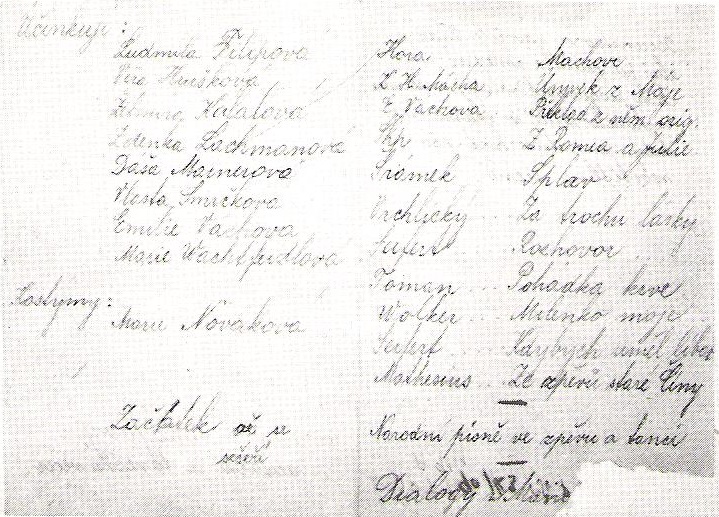 Účinkují:
Ludmila Filipová
Věra Hružkova
Kafatova
Zdenka Lachmanová
Dáša Mainerova
Vlasta Smrčkova
Emilie Vachova
Marie Wachtfeidlová
Kostýmy:
Marie Nováková
Začátek až se
sešeří
Hora Machovi
K. H. Mácha Úryvek z Máje
E. Vachova Překlad z něm. orig.
Z Romea a Julie
Šrámek Splav
Vrchlický Za trochu lásky
Seifert Rozhovor
Toman Pohádka krve
Wolker Milenko moje
Seifert Kdybych uměl
Mathesius Ze zpěvů staré Číny
Narodní písně ve zpěvu a tanci
Dialogy